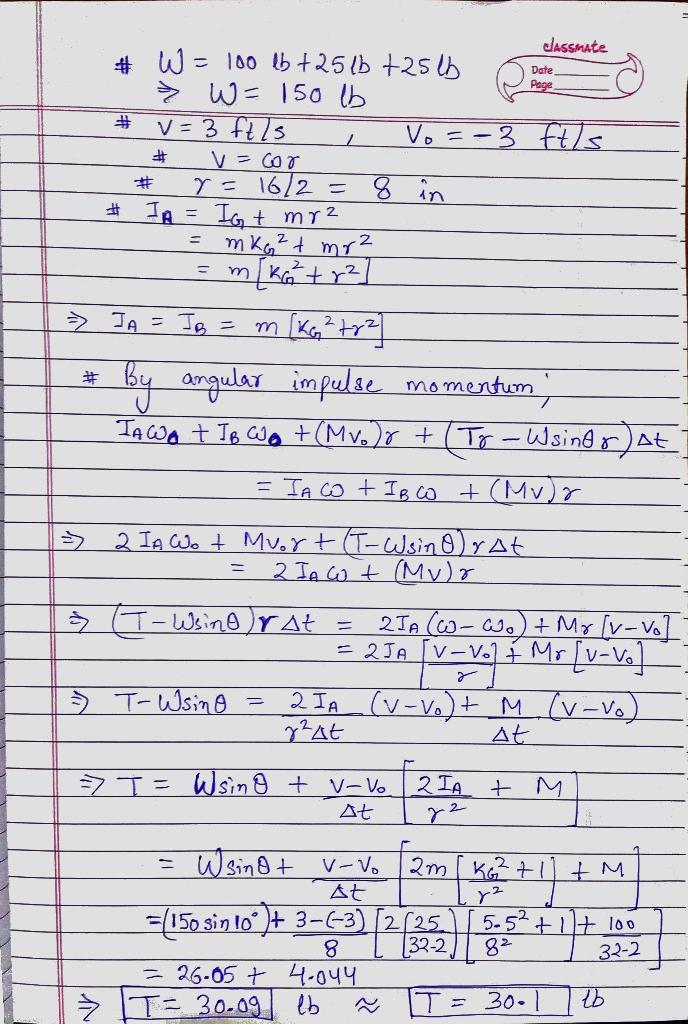 classmate
Date
Page
# W = 100 lb + 25 lb + 25 lb
⇒ W = 150 lb
# V = 3 ft/s , V₀ = -3 ft/s
# V = ωr
# r = 16/2 = 8 in
# I_A = I_G + mr²
= mK_G² + mr²
= m[K_G² + r²]
⇒ I_A = I_B = m[K_G² + r²]
# By angular impulse momentum;
I_A ω₀ + I_B ω₀ + (MV₀)r + (Tr - Wsinθ r)Δt
= I_A ω + I_B ω + (MV)r
⇒ 2 I_A ω₀ + MV₀r + (T - Wsinθ)rΔt
= 2 I_A ω + (MV)r
⇒ (T - Wsinθ)rΔt = 2I_A(ω - ω₀) + Mr[V - V₀]
= 2I_A [V - V₀]/r + Mr[V - V₀]
⇒ T - Wsinθ = 2 I_A/r²Δt (V - V₀) + M/Δt (V - V₀)
⇒ T = Wsinθ + V - V₀/Δt [2 I_A/r² + M]
= Wsinθ + V - V₀/Δt [2m [K_G²/r² + 1] + M]
= (150 sin 10°) + 3-(-3)/8 [2(25/32.2)[5.5²/8² + 1] + 100/32.2]
= 26.05 + 4.044
⇒ T = 30.09 lb ≈ T = 30.1 lb